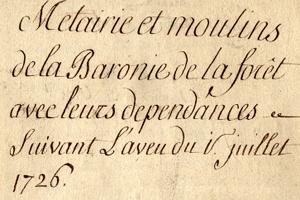 Metairie et moulins
de la Baronie de la forêt
avec leurs dependances
Suivant L'aveu du 15 juillet
1726.